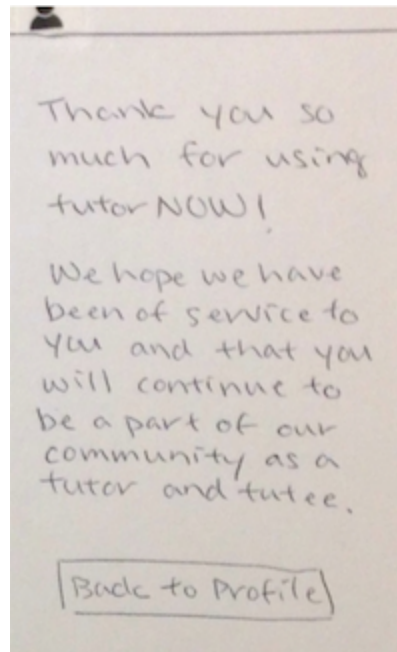 Thank you so
much for using
tutorNOW!
We hope we have
been of service to
you and that you
will continue to
be a part of our
community as a
tutor and tutee.
Back to Profile